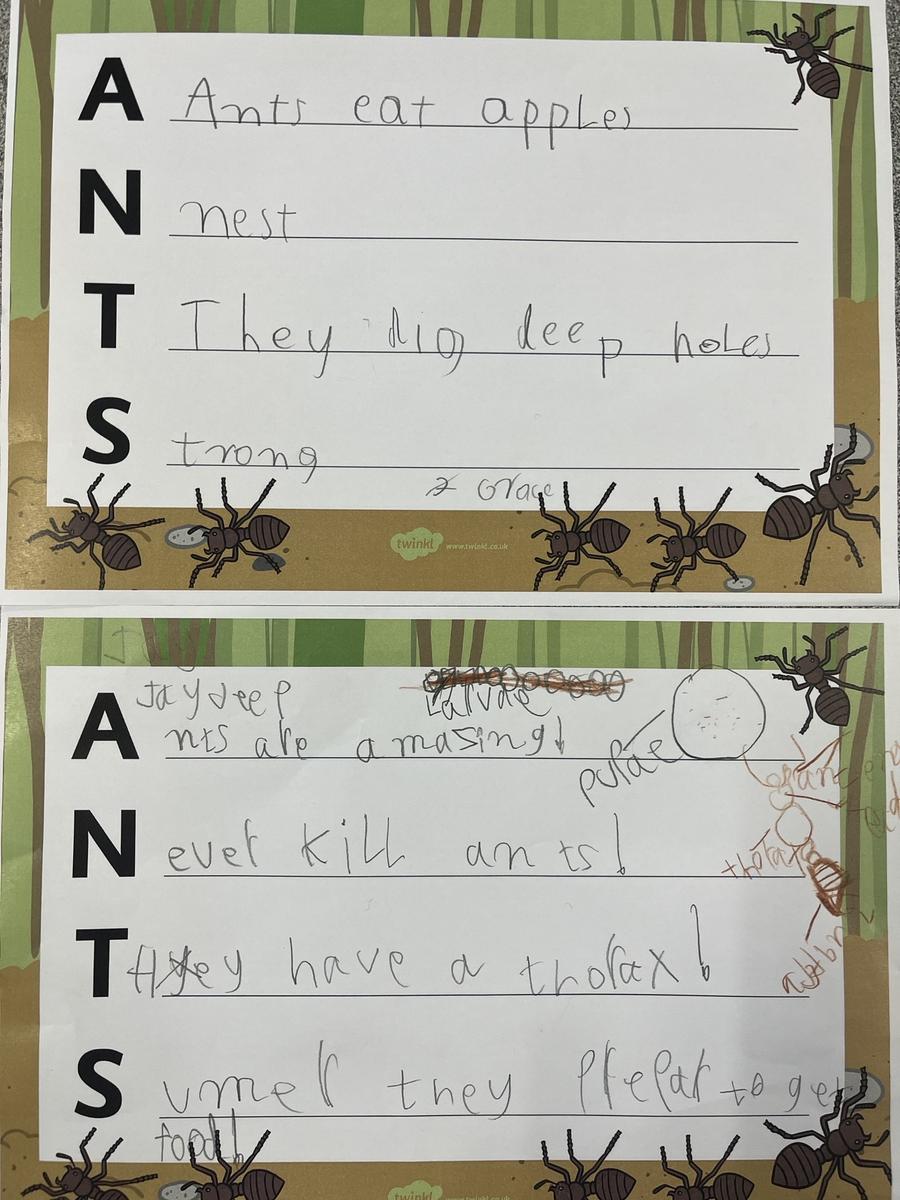 A Ants eat apples
N nest
T They dig deep holes
S trong
Grace
twinkl www.twinkl.co.uk
Jaydeep
Larvae
A nts are amasing!
pupae
N ever kill ants!
thorax
T hey have a thorax!
S umer they prepar to get
food!
twinkl